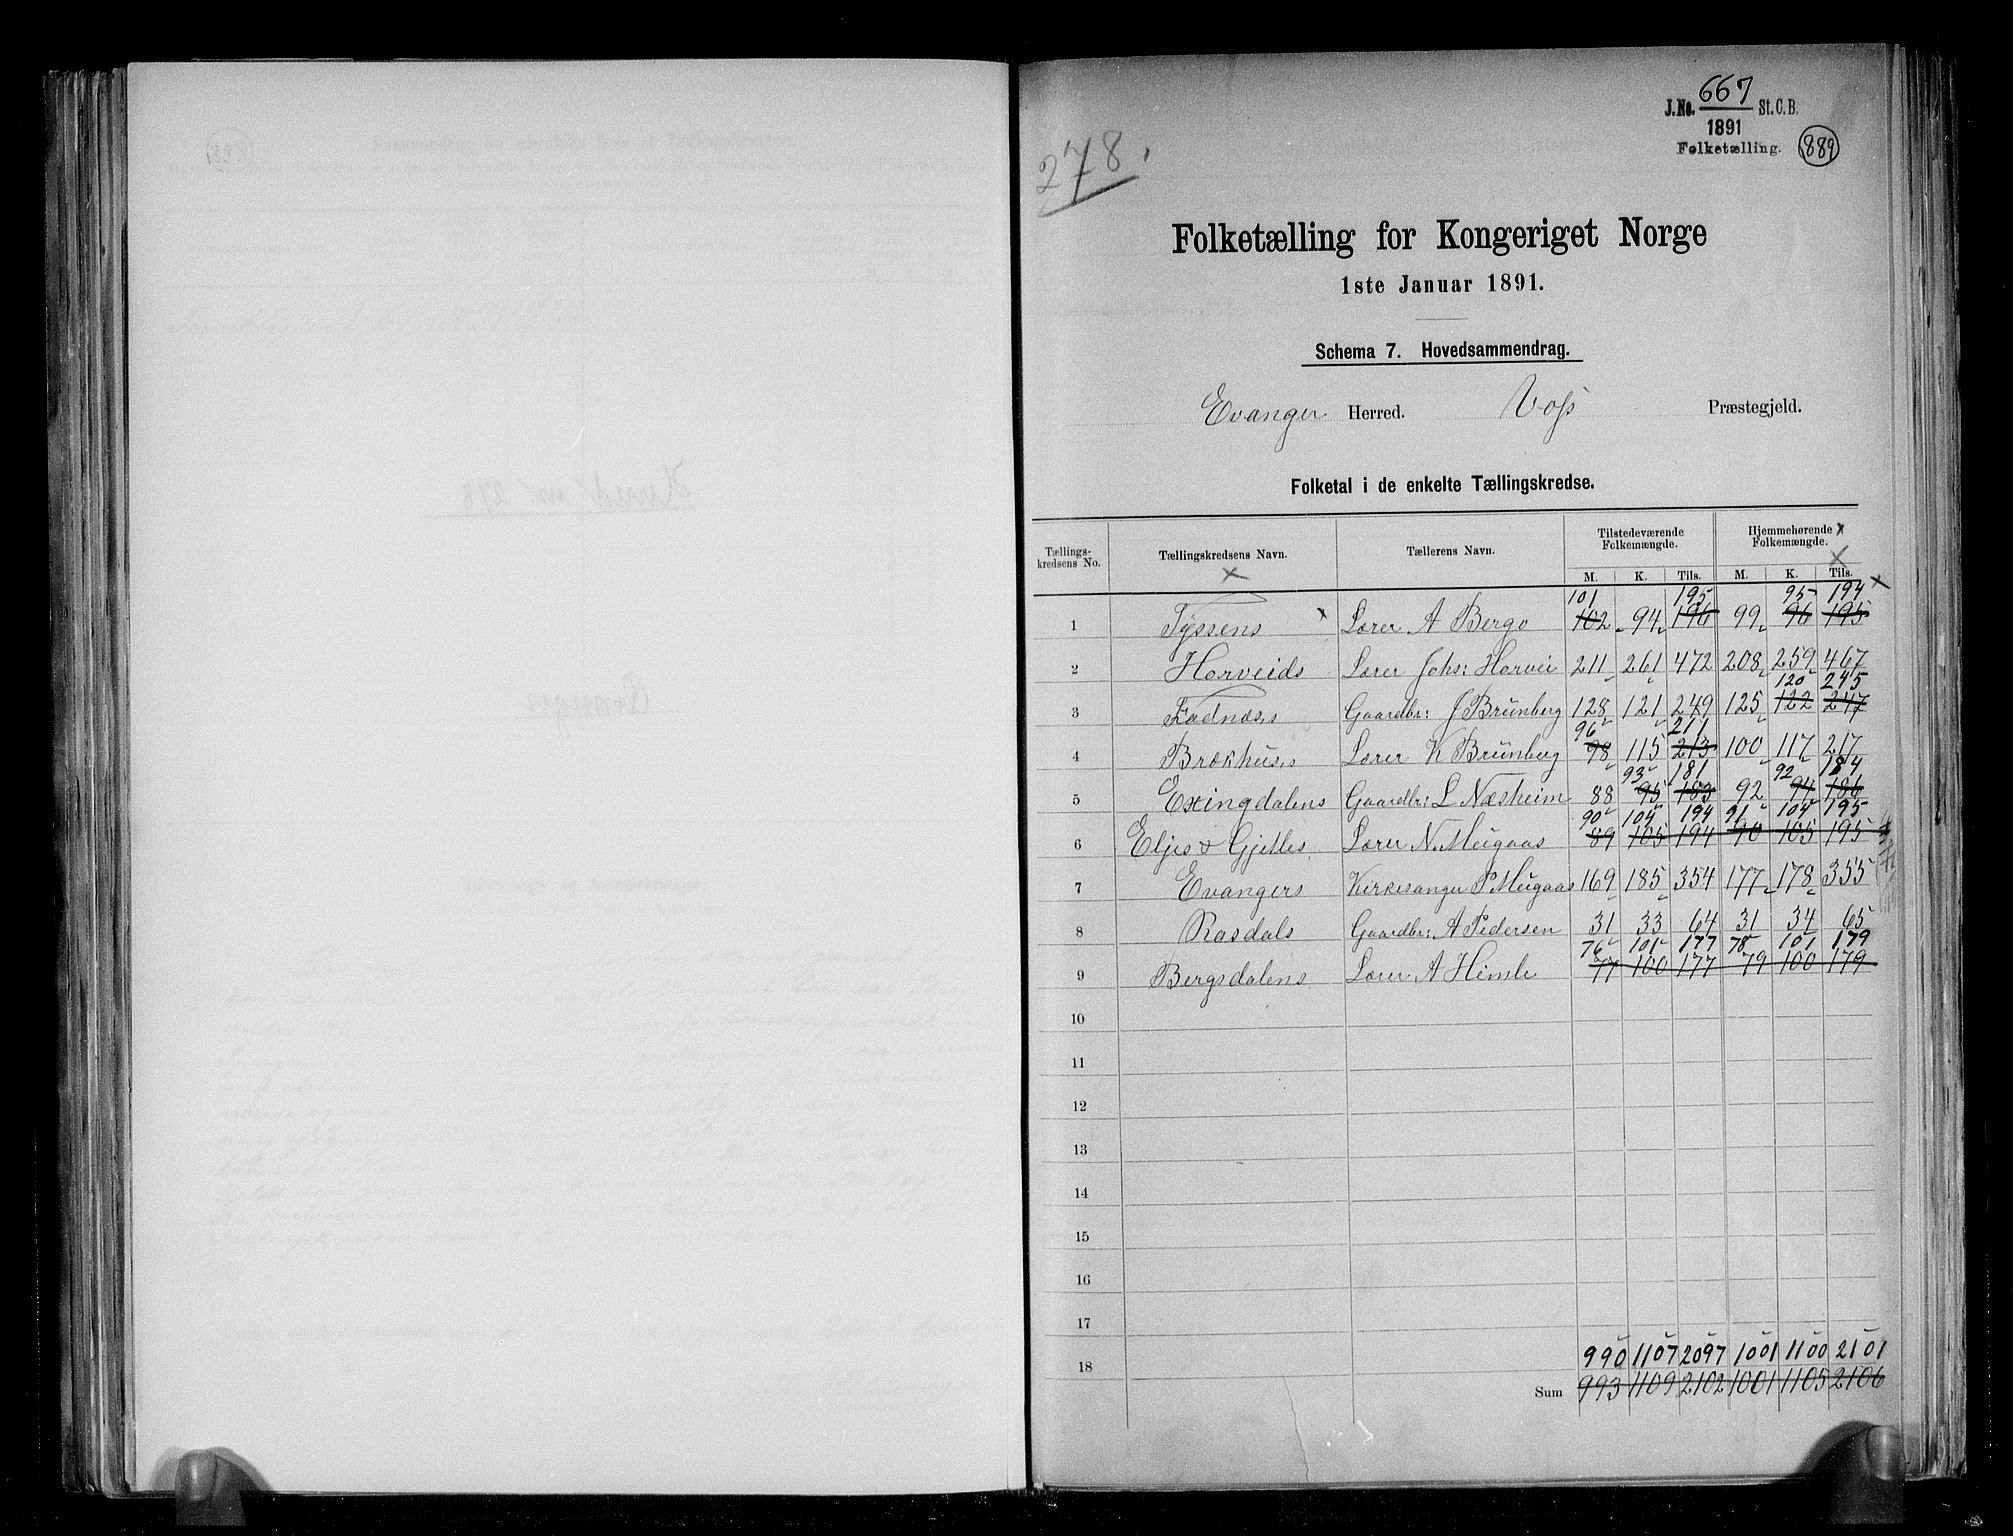 278.
J.No. 667 St. C. B.
1891
Folketælling. 889
Folketælling for Kongeriget Norge
1ste Januar 1891.
Schema 7. Hovedsammendrag.
Evanger Herred. Voss Præstegjeld.
Folketal i de enkelte Tællingskredse.
Tællings-kredsens No. Tællingskredsens Navn. Tællerens Navn. Tilstedeværende Folkemængde. Hjemmehørende Folkemængde.
M. K. Tils. M. K. Tils.
101 195 95 194
1 Tyssens Lærer A Bergo 102 94 196 99 96 195
2 Horveids Lærer Johs: Horvei 211 261 472 208 259 467
120 245
3 Fadnæss Gaardbr: J Brünberg 128 121 249 125 122 247
96 211
4 Brækhuss Lærer K Brünberg 98 115 213 100 117 217
93 181 92 184
5 Exingdalens Gaardbr: L Næsheim 88 95 183 92 94 186
90 104 194 91 104 195
6 Eljes & Gjelles Lærer N. Mugaas 89 105 194 90 105 195
7 Evangers Kirkesanger P Mugaas 169 185 354 177 178 355
8 Rasdals Gaardbr: A Pedersen 31 33 64 31 34 65
76 101 177 78 101 179
9 Bergsdalens Lærer A Himle 77 100 177 79 100 179
10
11
12
13
14
15
16
17
18 990 1107 2097 1001 1100 2101
Sum 993 1109 2102 1001 1105 2106